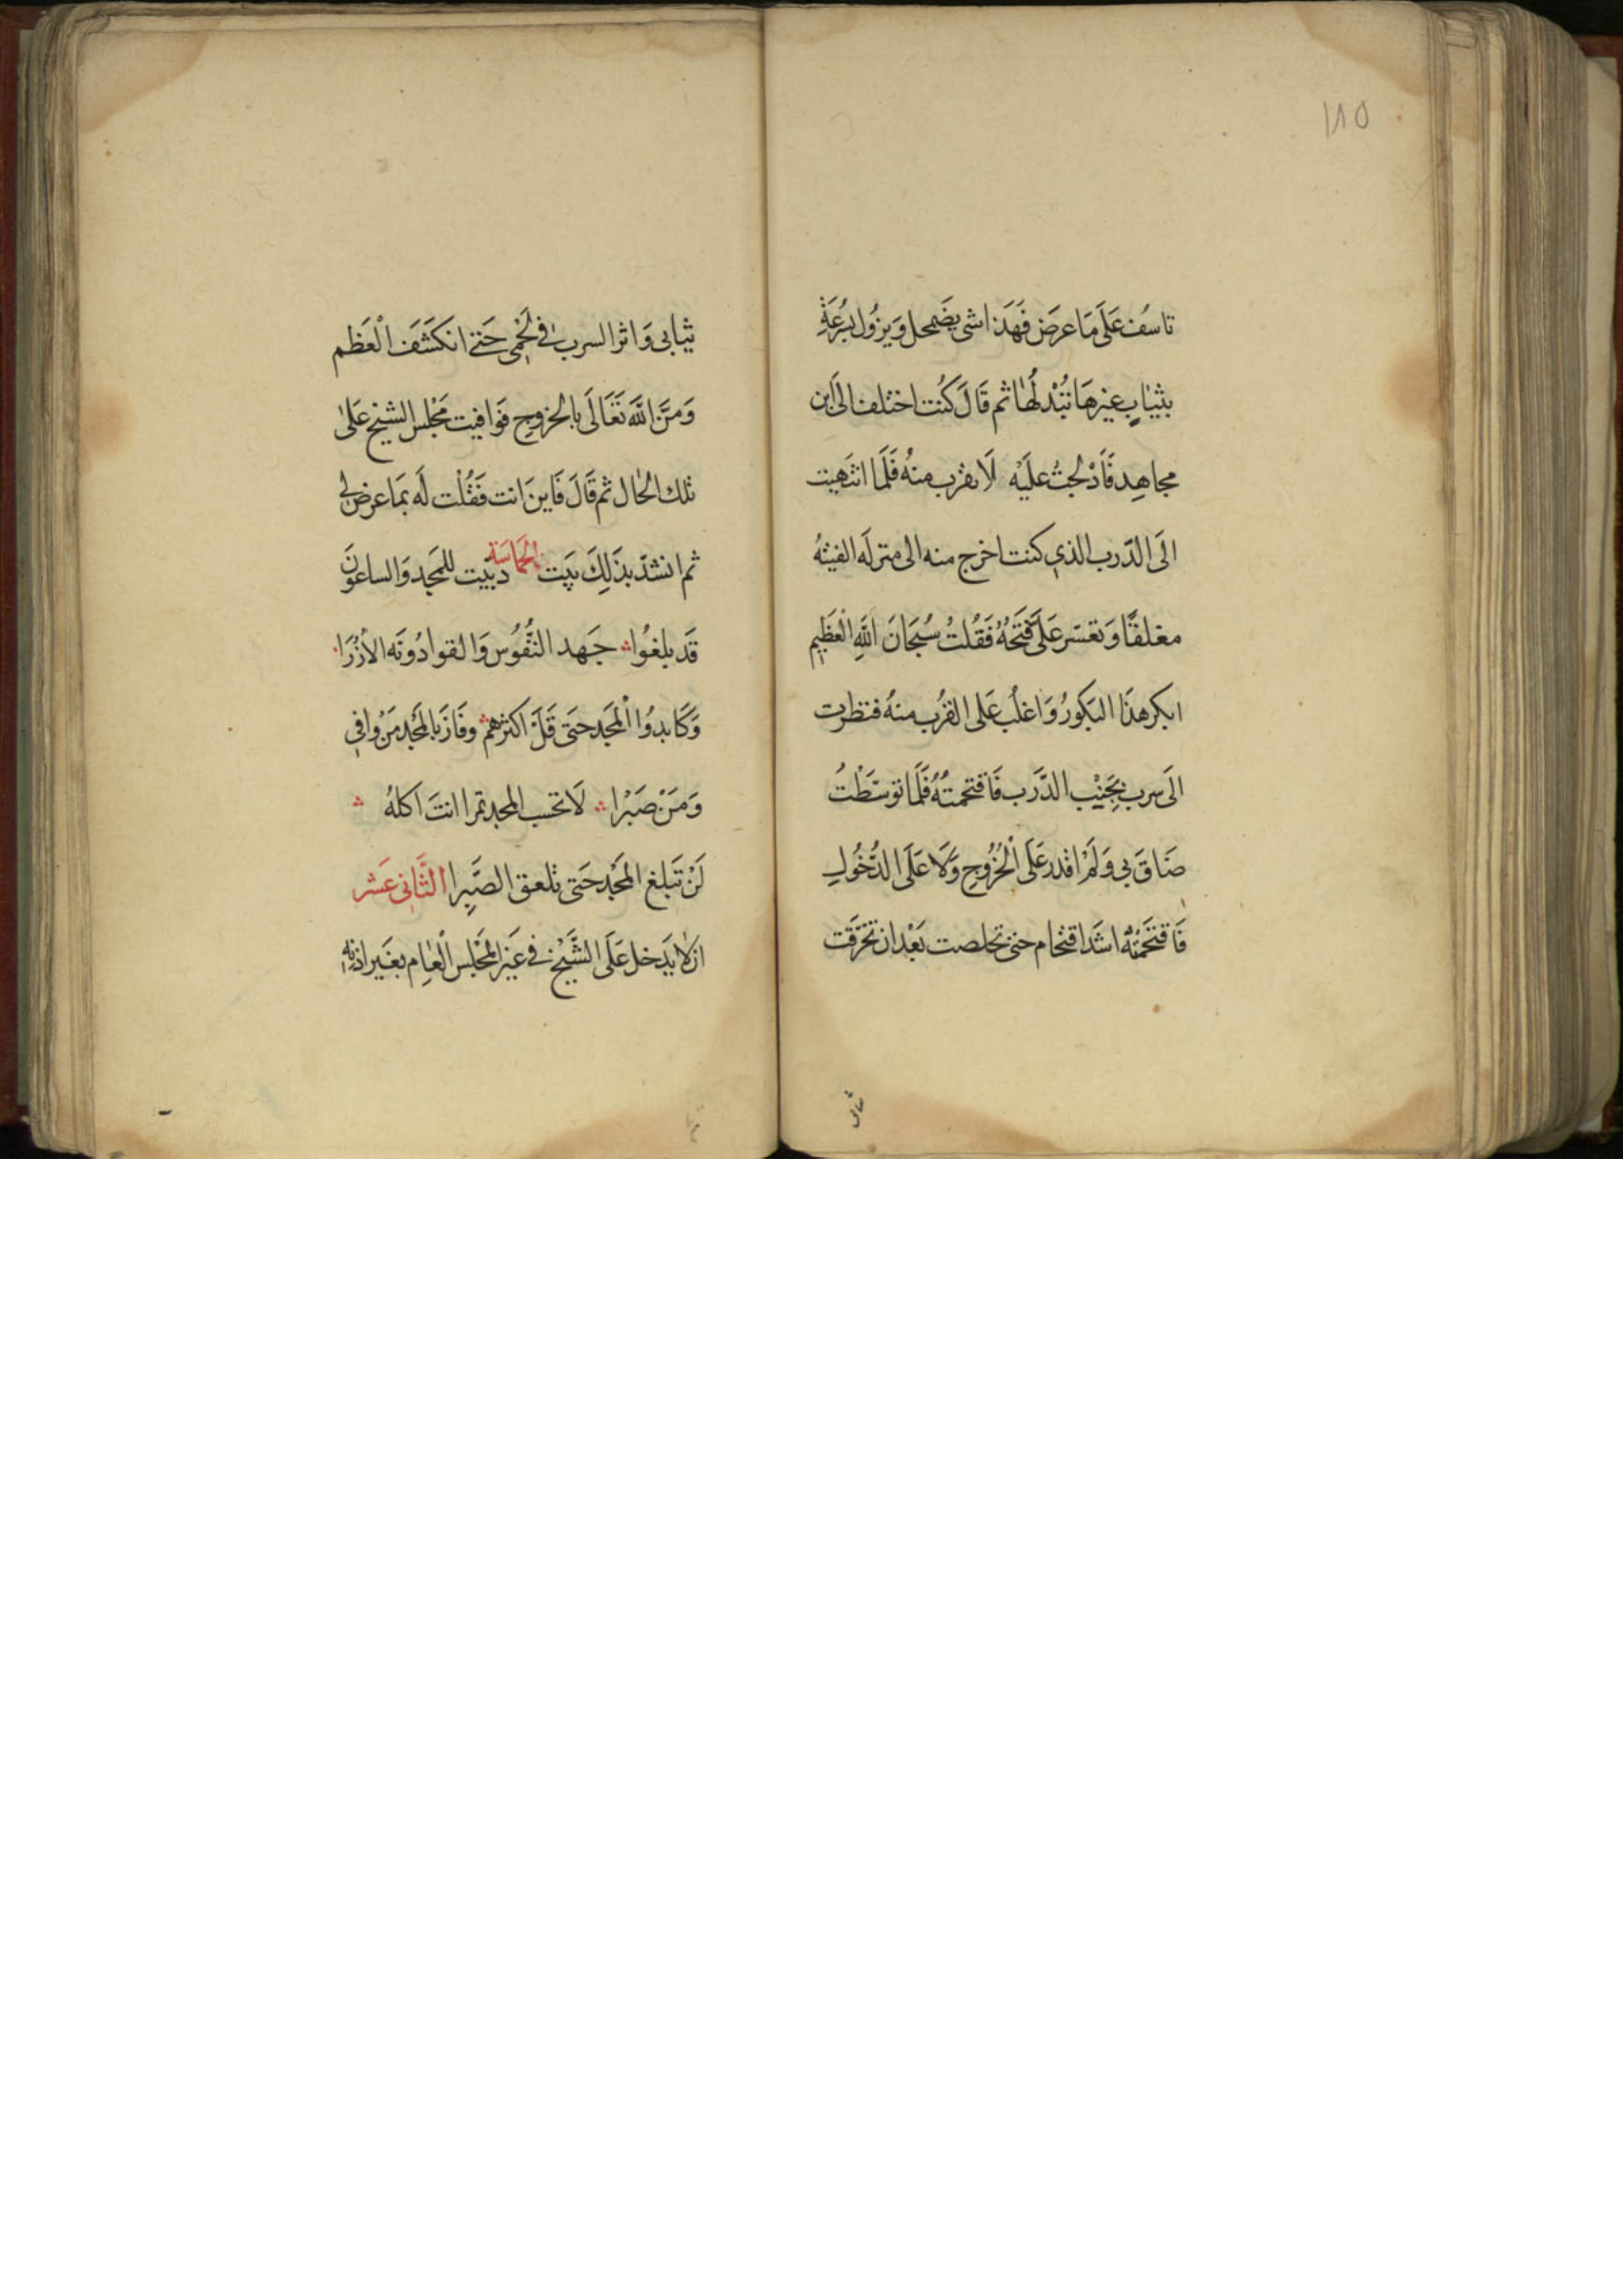 ١٨٥
تاسف عَلَى مَا عرَض فَهَذا شى يضَمحل وَيزُول بسُرعَةٍ
بثيَابٍ غيرهَا تُبْدلُهَا ثم قَالَ كُنت اختلف الىَ ابن
مجاهِد فَادْلجتُ علَيْه لَا تقرب منهُ فَلَمّا انتَهيت
الَى الدّرب الذي كنت اخرج منه الى منزلَه الفيتهُ
مغلقًا وَتعسّر عَلَىَّ فَتحَهُ فَقُلتُ سُبحَانَ اللَّهِ الْعَظِيمِ
ابكر هذَا البكورُ وَاغلُب عَلى القرُب منهُ فنظرت
الَى سرب بجَنْبِ الدَّرب فَاقتحمتُهُ فَلَمّا توسّطْتُ
ضَاقَ بي وَلَمْ اقدر عَلَى الْخُرُوجِ وَلَا عَلَى الدُّخُولِ
فَاقتَحَمتُهُ اشَدّ اقتحام حتى تخلصت بَعْد ان تخرَّقَت
ثيابى
ثيَابى وَاثر السرب فى لَحْمى حَتى انكَشَفَ الْعَظم
وَمَنَّ اللَّه تَعَالَى بالخروجِ فَوَافيت مَجْلِس الشيخ عَلَى
تلك الحَال ثم قَالَ فَاينَ انت فَقُلْت لَه بمَا عرض لى
ثم انشدَ بذَلِكَ بَيت الحَمَاسَة دبيت للمَجد وَالساعُونَ
قَد بلغُوا جَهد النُّفُوس وَالقوا دُونَه الأُزُرَا
وَكَابدُوا الْمَجد حَتى قَلَّ اكثرهم وفَازَ بالمَجْد مَنْ وافى
وَمَنْ صَبَرْا لَا تحسب المجد تمرا انتَ اكلهُ
لَنْ تَبلغ المَجْد حَتى تلعق الصَّبِرا الثَّانى عَشَر
ان لا يَدخل عَلَى الشَّيْخ فى غَير المَجْلِس الْعَامِ بغَير اذنِهِ